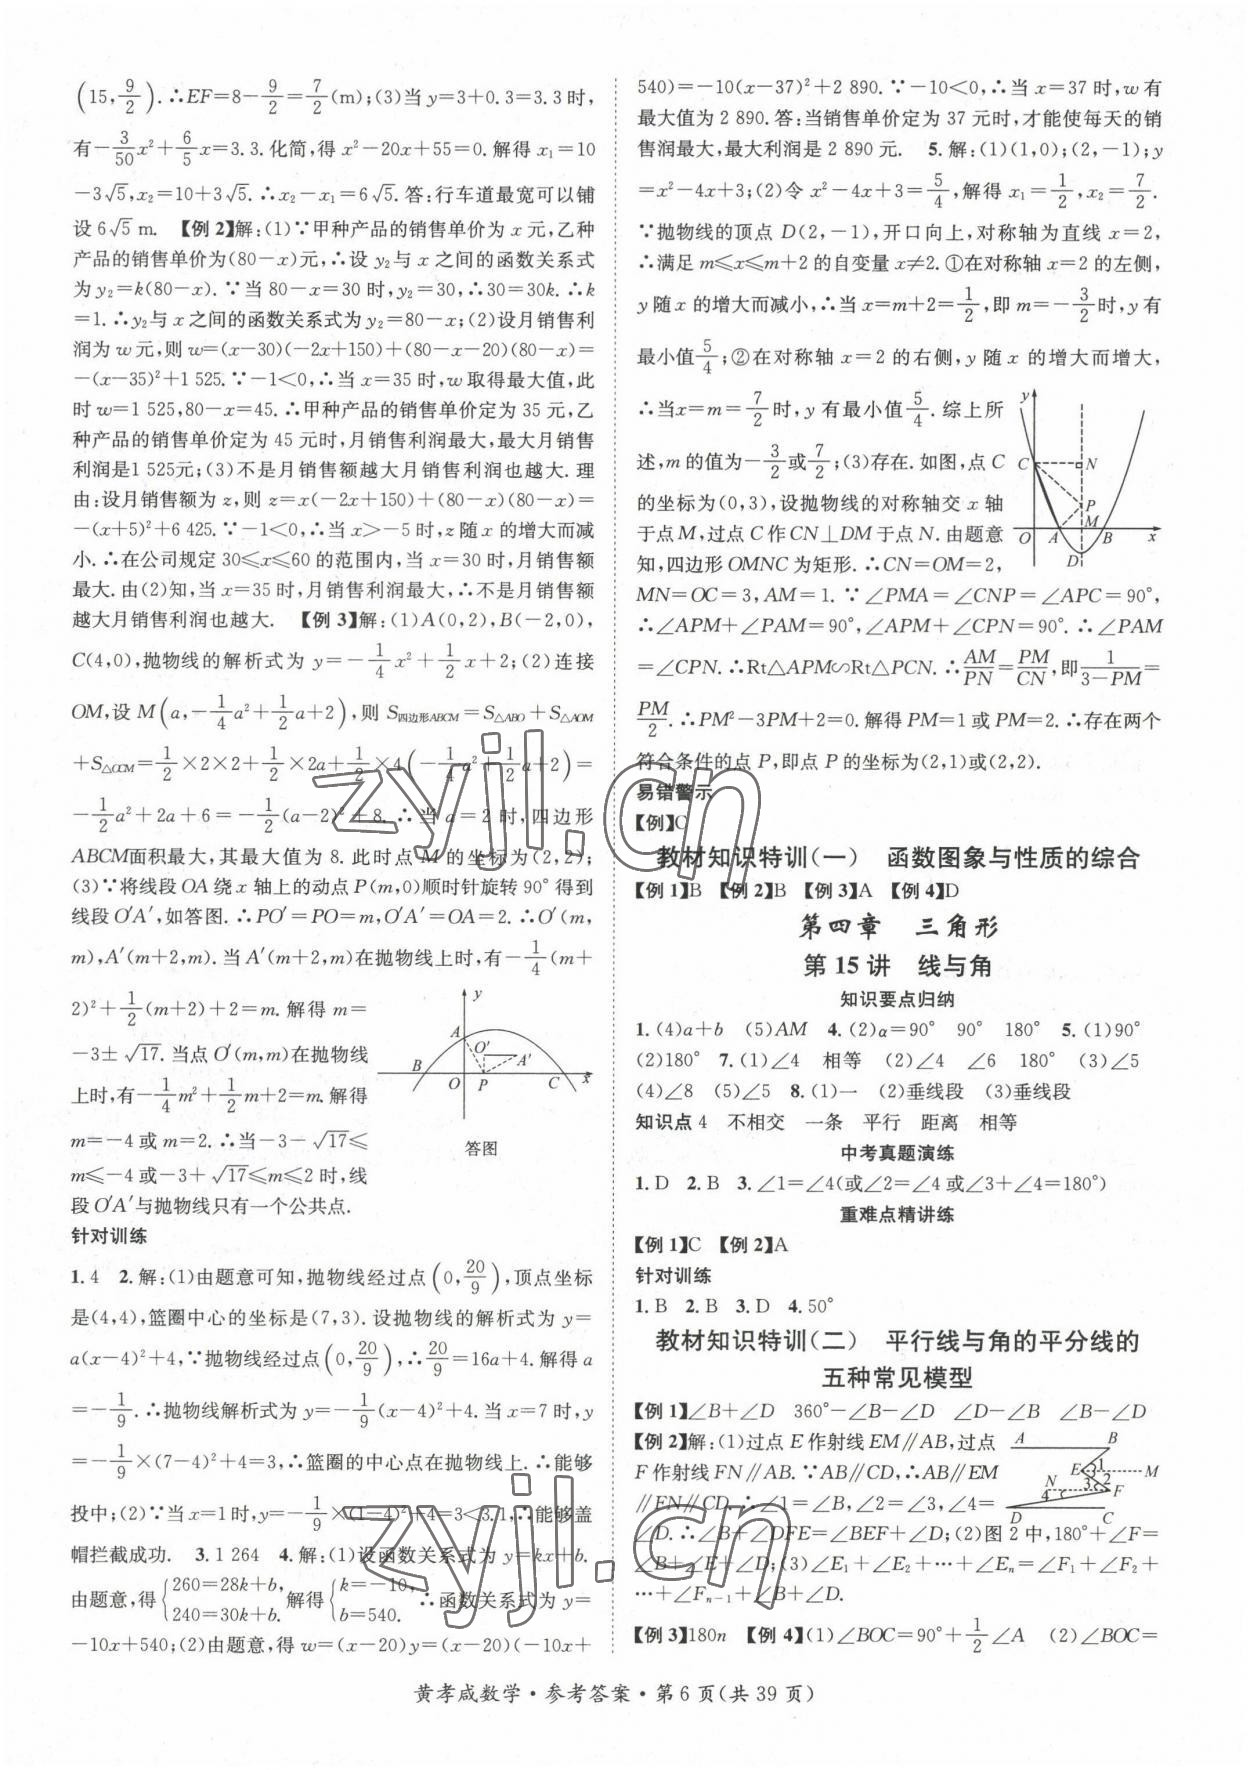 (15,9/2).∴EF=8-9/2=7/2(m);(3)当 y=3+0.3=3.3 时,
有-3/50x²+6/5x=3.3.化简,得 x²-20x+55=0.解得 x₁=10
-3√5,x₂=10+3√5.∴x₂-x₁=6√5.答:行车道最宽可以铺
设 6√5 m. 【例 2】解:(1)∵甲种产品的销售单价为 x 元,乙种
产品的销售单价为(80-x)元,∴设 y₂与 x 之间的函数关系式
为 y₂=k(80-x).∵当 80-x=30 时,y₂=30,∴30=30k.∴k
=1.∴y₂与 x 之间的函数关系式为 y₂=80-x;(2)设月销售利
润为 w 元,则 w=(x-30)(-2x+150)+(80-x-20)(80-x)=
-(x-35)²+1 525.∵-1<0,∴当 x=35 时,w 取得最大值,此
时 w=1 525,80-x=45.∴甲种产品的销售单价定为 35 元,乙
种产品的销售单价定为 45 元时,月销售利润最大,最大月销售
利润是1 525元;(3)不是月销售额越大月销售利润也越大.理
由:设月销售额为 z,则 z=x(-2x+150)+(80-x)(80-x)=
-(x+5)²+6 425.∵-1<0,∴当 x>-5 时,z 随 x 的增大而减
小.∴在公司规定 30≤x≤60 的范围内,当 x=30 时,月销售额
最大.由(2)知,当 x=35时,月销售利润最大,∴不是月销售额
越大月销售利润也越大. 【例 3】解:(1)A(0,2),B(-2,0),
C(4,0),抛物线的解析式为 y=-1/4x²+1/2x+2;(2)连接
OM,设 M(a,-1/4a²+1/2a+2),则 S四边形ABCM=S△ABO+S△AOM
+S△OCM=1/2×2×2+1/2×2a+1/2×4(-1/4a²+1/2a+2)=
-1/2a²+2a+6=-1/2(a-2)²+8.∴当 a=2 时,四边形
ABCM面积最大,其最大值为 8.此时点 M 的坐标为(2,2);
(3)∵将线段 OA 绕 x 轴上的动点 P(m,0)顺时针旋转 90° 得到
线段 O′A′,如答图.∴PO′=PO=m,O′A′=OA=2.∴O′(m,
m),A′(m+2,m).当 A′(m+2,m)在抛物线上时,有-1/4(m+
2)²+1/2(m+2)+2=m.解得 m=
-3±√17.当点 O′(m,m)在抛物线
上时,有-1/4m²+1/2m+2=m.解得
m=-4 或 m=2.∴当-3-√17≤
m≤-4 或-3+√17≤m≤2 时,线
段 O′A′与抛物线只有一个公共点.
y
A
O′
A′
B
O
P
C
x
答图
针对训练
1.4 2.解:(1)由题意可知,抛物线经过点(0,20/9),顶点坐标
是(4,4),篮圈中心的坐标是(7,3).设抛物线的解析式为 y=
a(x-4)²+4,∵抛物线经过点(0,20/9),∴20/9=16a+4.解得 a
=-1/9.∴抛物线解析式为 y=-1/9(x-4)²+4.当 x=7 时,y
=-1/9×(7-4)²+4=3,∴篮圈的中心点在抛物线上.∴能够
投中;(2)∵当 x=1时,y=-1/9×(1-4)²+4=3<3.1,∴能够盖
帽拦截成功. 3.1 264 4.解:(1)设函数关系式为 y=kx+b.
由题意,得{260=28k+b, 240=30k+b. 解得{k=-10, b=540. ∴函数关系式为 y=
-10x+540;(2)由题意,得 w=(x-20)y=(x-20)(-10x+
540)=-10(x-37)²+2 890.∵-10<0,∴当 x=37 时,w 有
最大值为 2 890.答:当销售单价定为 37 元时,才能使每天的销
售润最大,最大利润是 2 890 元. 5.解:(1)(1,0);(2,-1);y
=x²-4x+3;(2)令 x²-4x+3=5/4,解得 x₁=1/2,x₂=7/2.
∵抛物线的顶点 D(2,-1),开口向上,对称轴为直线 x=2,
∴满足 m≤x≤m+2 的自变量 x≠2.①在对称轴 x=2 的左侧,
y 随 x 的增大而减小,∴当 x=m+2=1/2,即 m=-3/2时,y 有
最小值5/4;②在对称轴 x=2 的右侧,y 随 x 的增大而增大,
∴当x=m=7/2时,y 有最小值5/4.综上所
述,m 的值为-3/2或7/2;(3)存在.如图,点 C
的坐标为(0,3),设抛物线的对称轴交 x 轴
于点 M,过点 C 作 CN⊥DM 于点 N.由题意
知,四边形 OMNC 为矩形.∴CN=OM=2,
y
C
N
P
M
O
A
B
x
D
MN=OC=3,AM=1.∵∠PMA=∠CNP=∠APC=90°,
∴∠APM+∠PAM=90°,∠APM+∠CPN=90°.∴∠PAM
=∠CPN.∴Rt△APM∽Rt△PCN.∴AM/PN=PM/CN,即1/(3-PM)=
PM/2.∴PM²-3PM+2=0.解得 PM=1 或 PM=2.∴存在两个
符合条件的点 P,即点 P 的坐标为(2,1)或(2,2).
易错警示
【例】C
教材知识特训(一) 函数图象与性质的综合
【例 1】B 【例 2】B 【例 3】A 【例 4】D
第四章 三角形
第 15 讲 线与角
知识要点归纳
1.(4)a+b (5)AM 4.(2)α=90° 90° 180° 5.(1)90°
(2)180° 7.(1)∠4 相等 (2)∠4 ∠6 180° (3)∠5
(4)∠8 (5)∠5 8.(1)一 (2)垂线段 (3)垂线段
知识点 4 不相交 一条 平行 距离 相等
中考真题演练
1.D 2.B 3.∠1=∠4(或∠2=∠4 或∠3+∠4=180°)
重难点精讲练
【例 1】C 【例 2】A
针对训练
1.B 2.B 3.D 4.50°
教材知识特训(二) 平行线与角的平分线的
五种常见模型
【例 1】∠B+∠D 360°-∠B-∠D ∠D-∠B ∠B-∠D
【例 2】解:(1)过点 E 作射线 EM∥AB,过点
F 作射线 FN∥AB.∵AB∥CD,∴AB∥EM
∥FN∥CD.∴∠1=∠B,∠2=∠3,∠4=
∠D.∴∠B+∠DFE=∠BEF+∠D;(2)图 2 中,180°+∠F=
∠B+∠E+∠D;(3)∠E₁+∠E₂+…+∠Eₙ=∠F₁+∠F₂+
…+∠Fₙ₋₁+∠B+∠D.
A
B
E
1
2
M
N
3
4
F
D
C
【例 3】180n 【例 4】(1)∠BOC=90°+1/2∠A (2)∠BOC=
黄孝威数学·参考答案·第 6 页(共 39 页)
zyjl.cn
zyjl.cn